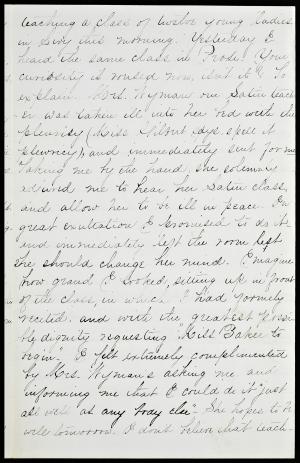 teaching a class of twelve young ladies
in Livy this morning. Yesterday I
heard the same class in Prose! Your
curiosity is roused now, isn't it? To
explain. Mrs. Wyman our Latin teach-
er was taken ill into her bed with the
Pleurisy (Miss Gilbert says spell it
Plewricy), and immediately sent for me
Taking me by the hand, she solemnly
advised me to hear her Latin class,
and allow her to be ill in peace. In
great exultation I promised to do it
and immediately left the room lest
she should change her mind. Imagine
how grand I looked, sitting up in front
of the class, in which I had formerly
recited, and with the greatest possi-
ble dignity requesting "Miss Baker to
begin." I felt extremely complimented
by Mrs. Wyman's asking me and
informing me that I could do it "just
as well as any body else". She hopes to be
well tomorrow. I dont believe that teach-